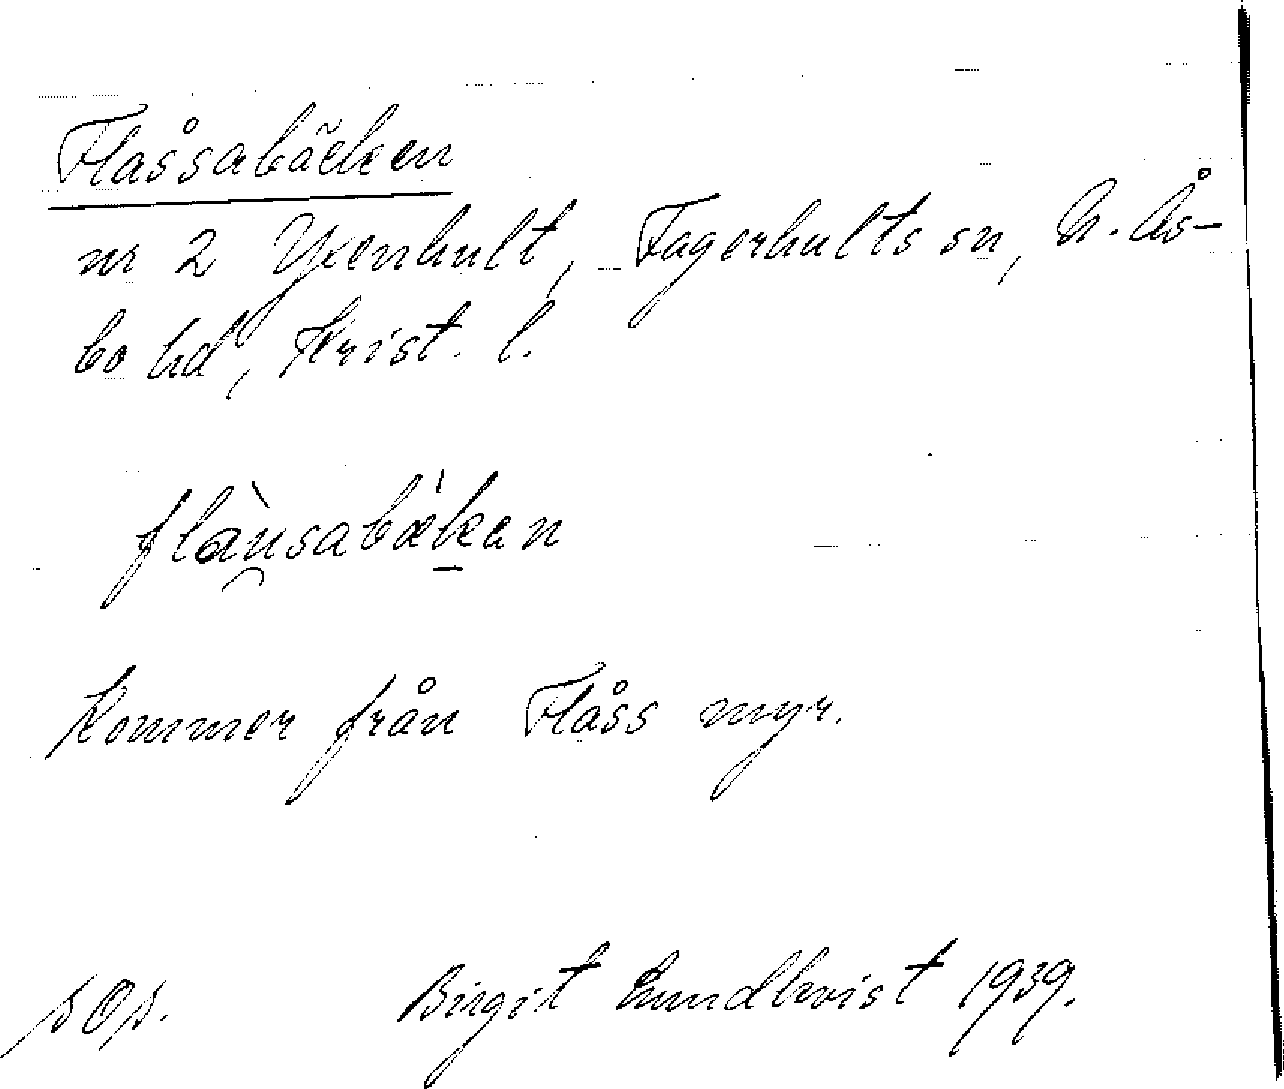 Flåssabäcken
nr 2 Yxenhult, Fagerhults sn, N. Ås-
bo hd, Krist. l.
flàu̯sabæ̀ken
Kommer från Flåss myr.
sOs. Birgit Lundkvist 1939.